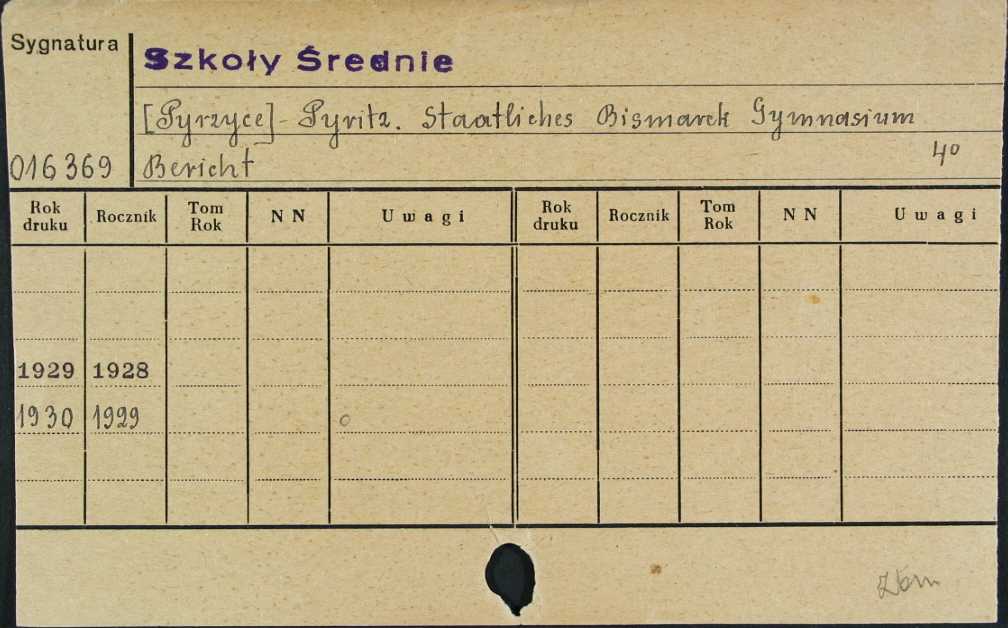 Sygnatura
Szkoły Średnie
[Pyrzyce] - Pyritz. Staatliches Bismarck Gymnasium
016369 Bericht 4°
Rok druku Rocznik Tom Rok NN Uwagi Rok druku Rocznik Tom Rok NN Uwagi
1929 1928
1930 1929 o